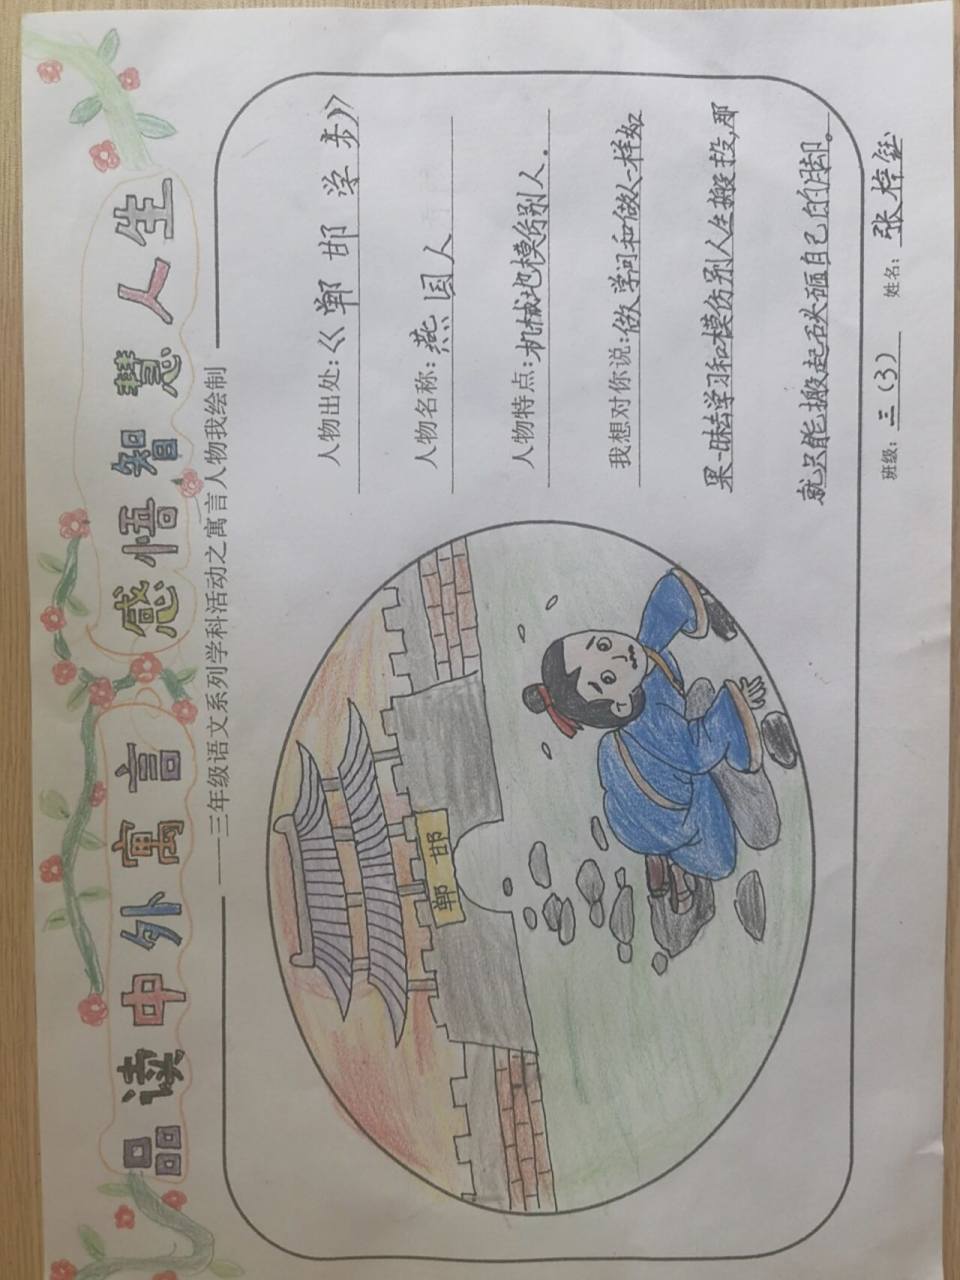 品读中外寓言 感悟智慧人生
——三年级语文系列学科活动之寓言人物我绘制
郸 邯
人物出处:《郸 邯 学 步》
人物名称:燕 国 人
人物特点:机械地模仿别人.
我想对你说:做学问和做人一样如
果一味去学习和模仿别人生搬硬投,那
就只能搬起石头砸自己的脚。
班级: 三(3) 姓名: 张梓钰